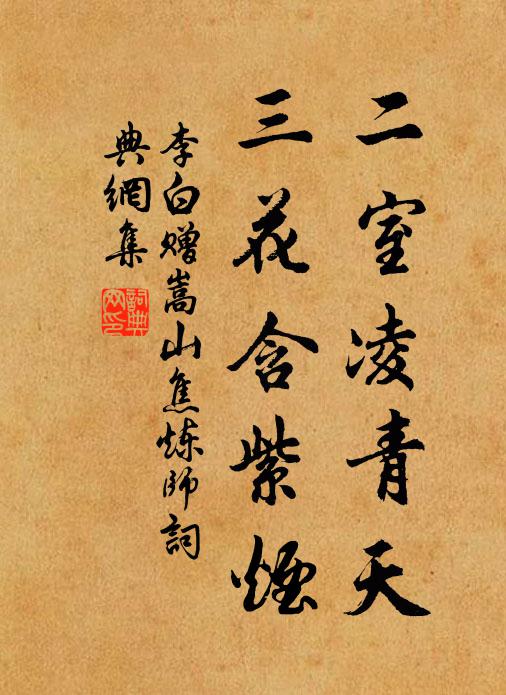 二室凌青天
三花含紫煙
李白贈嵩山焦煉師詞
典網集
詞典
网印